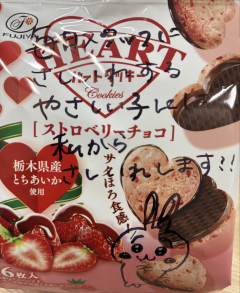 FUJIYA
HEART
さしいれする
ハートクッキー
Cookies
やさしい子に
[ストロベリーチョコ]
私から
栃木県産
とちあいか
使用
サクほろ食感
さしいれします!!
6枚入